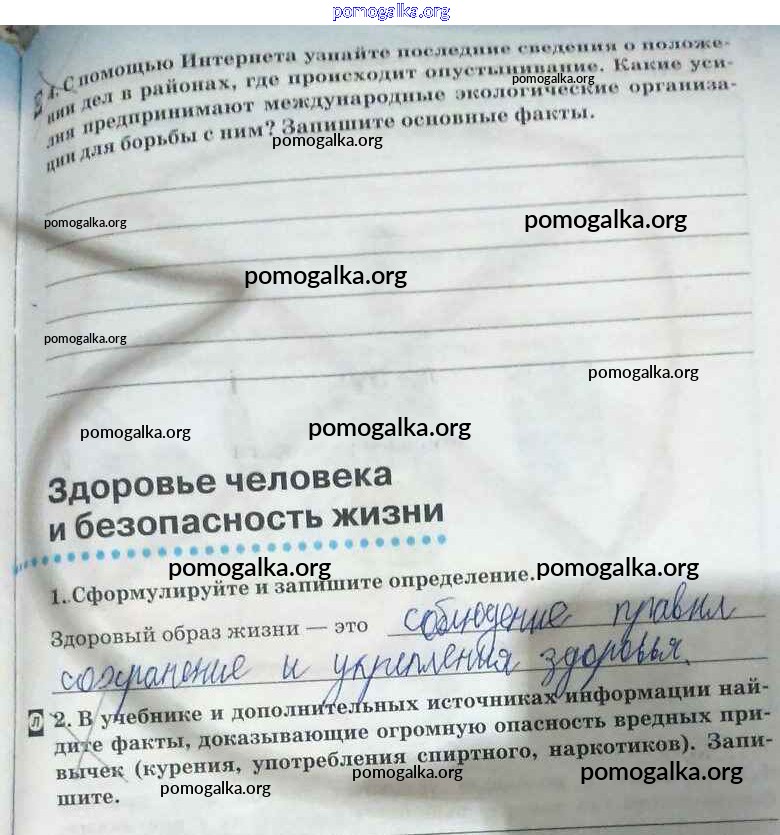 pomogalka.org
4. С помощью Интернета узнайте последние сведения о положе-
нии дел в районах, где происходит опустынивание. Какие уси-
pomogalka.org
лия предпринимают международные экологические организа-
ции для борьбы с ним? Запишите основные факты.
pomogalka.org
pomogalka.org pomogalka.org
pomogalka.org
pomogalka.org
pomogalka.org
pomogalka.org pomogalka.org
Здоровье человека
и безопасность жизни
pomogalka.org pomogalka.org
1. Сформулируйте и запишите определение.
Здоровый образ жизни — это соблюдение правил
сохранение и укрепления здоровья.
л 2. В учебнике и дополнительных источниках информации най-
дите факты, доказывающие огромную опасность вредных при-
вычек (курения, употребления спиртного, наркотиков). Запи-
pomogalka.org pomogalka.org
шите.
pomogalka.org